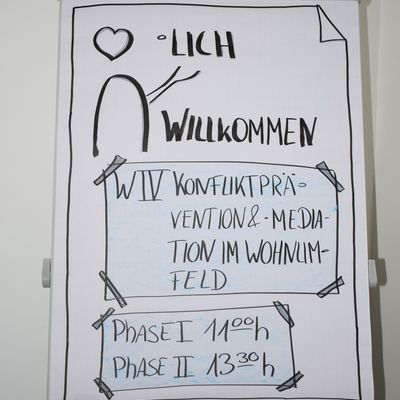 LICH
WILLKOMMEN
WIV KONFLIKTPRÄ-
VENTION & -MEDIA-
TION IM WOHNUM-
FELD
PHASE I 11ººh
PHASE II 13³ºh